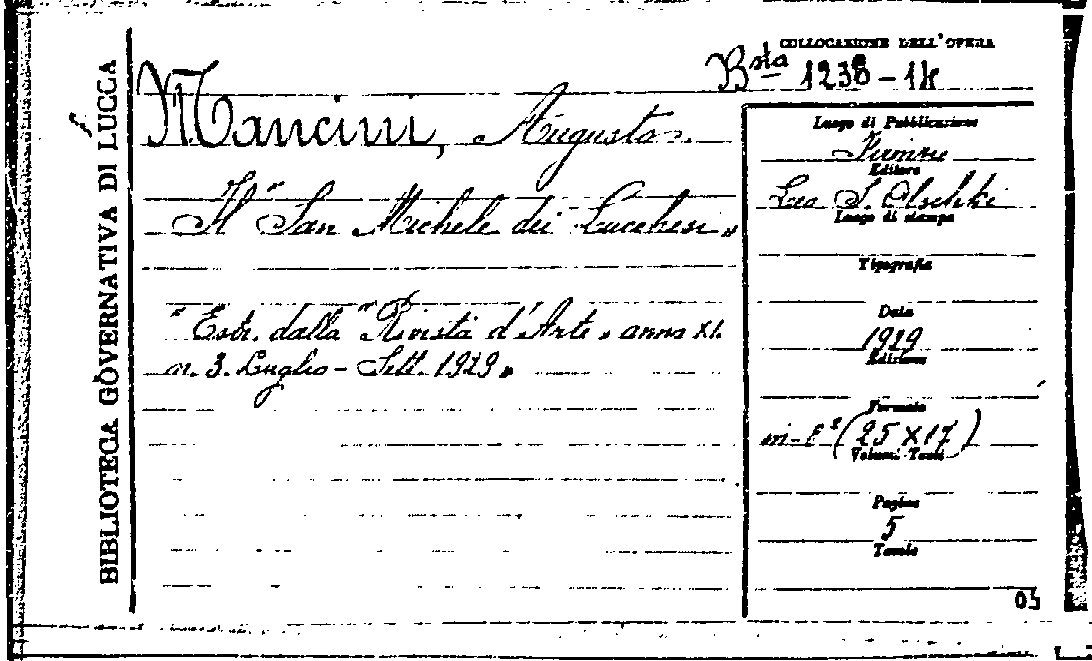 BIBLIOTECA GOVERNATIVA DI LUCCA
COLLOCAZIONE DELL'OPERA
Bsta 1238-14
Mancini, Augusto.
Il "San Michele dei Lucchesi"
"Estr. dalla "Rivista d'Arte" anno XI.
n. 3. Luglio - Sett. 1929"
Luogo di Pubblicazione
Firenze
Editore
Leo S. Olschki
Luogo di stampa
Tipografia
Data
1929
Edizione
Formato
in-8° (25 x 17)
Volumi-Tomi
Pagine
5
Tavole
05